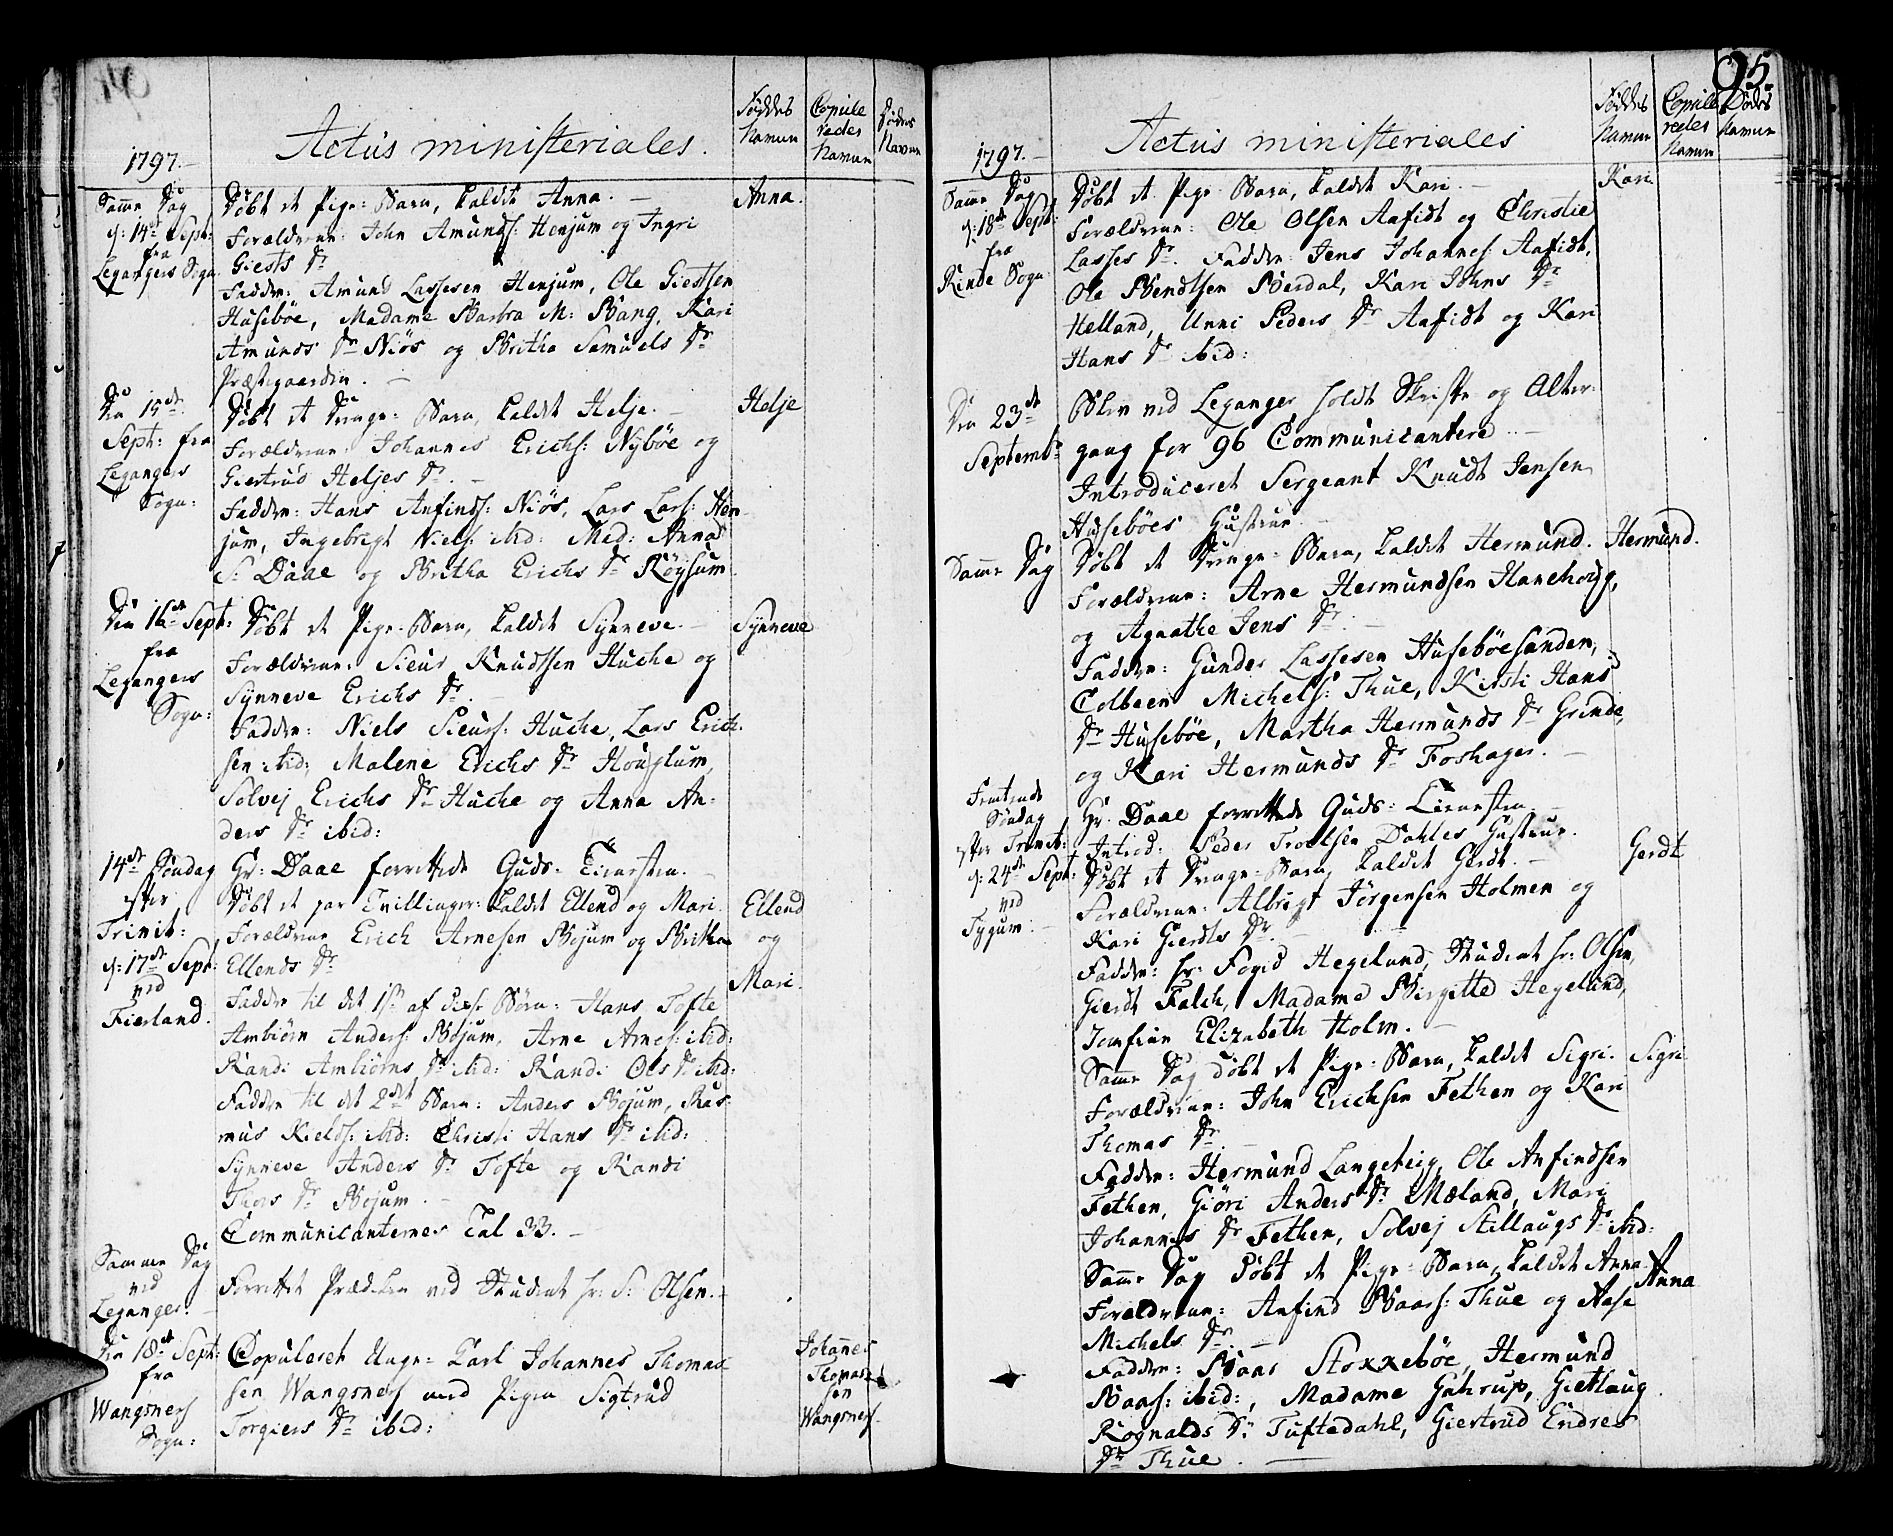 Actus ministeriales.
Föddes Namne
Copule redes Namne
Dödes Navne
1797.
Samme Dag
d: 14de Sept:
fra
Leganger Sogn
Döbt et Pige-Barn, kaldet Anna. —
Forældrene: John Amunds: Henjum og Ingri
Giests Dr
Faddere: Amund Lassesen Henjum, Ole Giestsen
Huseböe, Madame Barbra M: Bang, Kari
Amunds Dr Niøs og Britha Samuels Dr
Præstegaarden. —
Anna.
Den 15de
Sept: fra
Legangers
Sogn:
Döbt et Drenge-Barn, kaldet Helje. —
Forældrene: Johannes Erichs: Nyböe og
Giertrud Heljes Dr. —
Faddere: Hans Anfinds: Niøs, Lars Lars: Hen-
jum, Ingebrigt Niels: ibid: Mad: Anna
S: Daae og Britha Erichs Dr Röysum
Helje
Den 16de Sept:
fra
Legangers
Sogn:
Döbt et Pige-Barn, kaldet Synneve. —
Forældrene: Sieur Knudtsen Huche og
Synneve Erichs Dr. —
Faddere: Niels Sieurs: Huche, Lars Erich-
sen ibid: Malene Erichs Dr Houglum,
Solvej Erichs Dr Huche og Anna An-
ders Dr ibid:
Synneve
14de Söndag
efter
Trinit:
d: 17de Sept:
ved
Fierland.
Hr: Daae forrettede Guds-Tienesten. —
Döbt et par Tvillinger: kaldet Ellend og Mari.
Forældrene Erich Arnesen Böjum og Britha
Ellends Dr
Faddere til det 1ste af disse Börn: Hans Tofte
Ambiörn Anders: Böjum, Arne Arnes: ibid:
Randi Ambiörns Dr ibid: Randi Ols Dr ibid:
Faddere til det 2det Barn: Anders Böjum, Ras-
mus Kields: ibid: Christi Hans Dr ibid:
Synneve Anders Dr Tofte og Randi
Thors Dr Böjum. —
Communicanternes Tal 33. —
Ellend
og
Mari.
Sammen Dag
ved
Leganger. —
Forrettet Prædiken ved Student hr: S: Olsen. —
Den 18de Sept:
fra
Wangsness
Sogn:
Copuleret Unge-Karl Johannes Thomas-
sen Wangsness med Pigen Sigtrud
Torgiers Dr ibid:
Johannes
Thomas-
sen
Wangsness.
95.
Actus ministeriales
Föddes Namne
Copule redes Namne
Dödes Namne
1797. —
Samme Dag
d: 18de Sept:
fra
Rinde Sogn
Döbt et Pige-Barn, kaldet Kari. —
Forældrene: Ole Olsen Aafidt og Christie
Lasses Dr. Faddere: Jens Johannes: Aafidt,
Ole Bendtsen Berdal, Kari Johns Dr
Helland, Unni Peders Dr Aafidt og Kari
Hans Dr ibid:
Kari
Den 23de
Septembr
Blev ved Leganger holdt Skrifte og Alter-
gang for 96 Communicantere. —
Introduceret Sergeant Knudt Jensen
Huseböes Hustrue. —
Samme Dag
Döbt et Drenge-Barn, kaldet Hermund.
Forældrene: Arne Hermundsen Hanehoug,
og Agaathe Jens Dr. —
Faddere: Gunder Lassesen Huseböesanden,
Colbeen Michels: Thue, Kirsti Hans
Dr Huseböe, Martha Hermunds Dr Grinde,
og Kari Hermunds Dr Foshager. —
Hermund.
Femtende
Söndag
efter Trinit:
d: 24de Sept:
ved
Sygum. —
Hr: Daae forrettede Guds-Tienesten. —
Introd: Peder Troelsen Dahles Hustrue.
Döbt et Drenge-Barn, kaldet Gerdt. —
Forældrene: Albrigt Jörgensen Holmen og
Kari Gierdts Dr. —
Faddere: hr: Foged Hegelund, Student hr: Olsen,
Gierdt Falch, Madame Birgitte Hegelund,
Jomfrue Elizabeth Holm. —
Gerdt
Samme Dag döbt et Pige-Barn, kaldet Sigri.
Forældrene: John Erichsen Fethen og Kari
Thomas Dr. —
Faddere: Hermund Langeteig, Ole Anfindsen
Fethen, Giöri Anders Dr Mæland, Mari
Johannes Dr Fethen, Solvej Stillaugs Dr ibid:
Sigri
Samme Dag Döbt et Pige-Barn, kaldet Anna
Forældrene: Anfind Baars: Thue og Aase
Michels Dr. —
Faddere: Baar Stokkeböe, Hermund
Baars: ibid:, Madame Gahrup, Gietlaug
Rognalds Dr: Tuftedahl, Giertrud Endres
Dr Thue. —
Anna